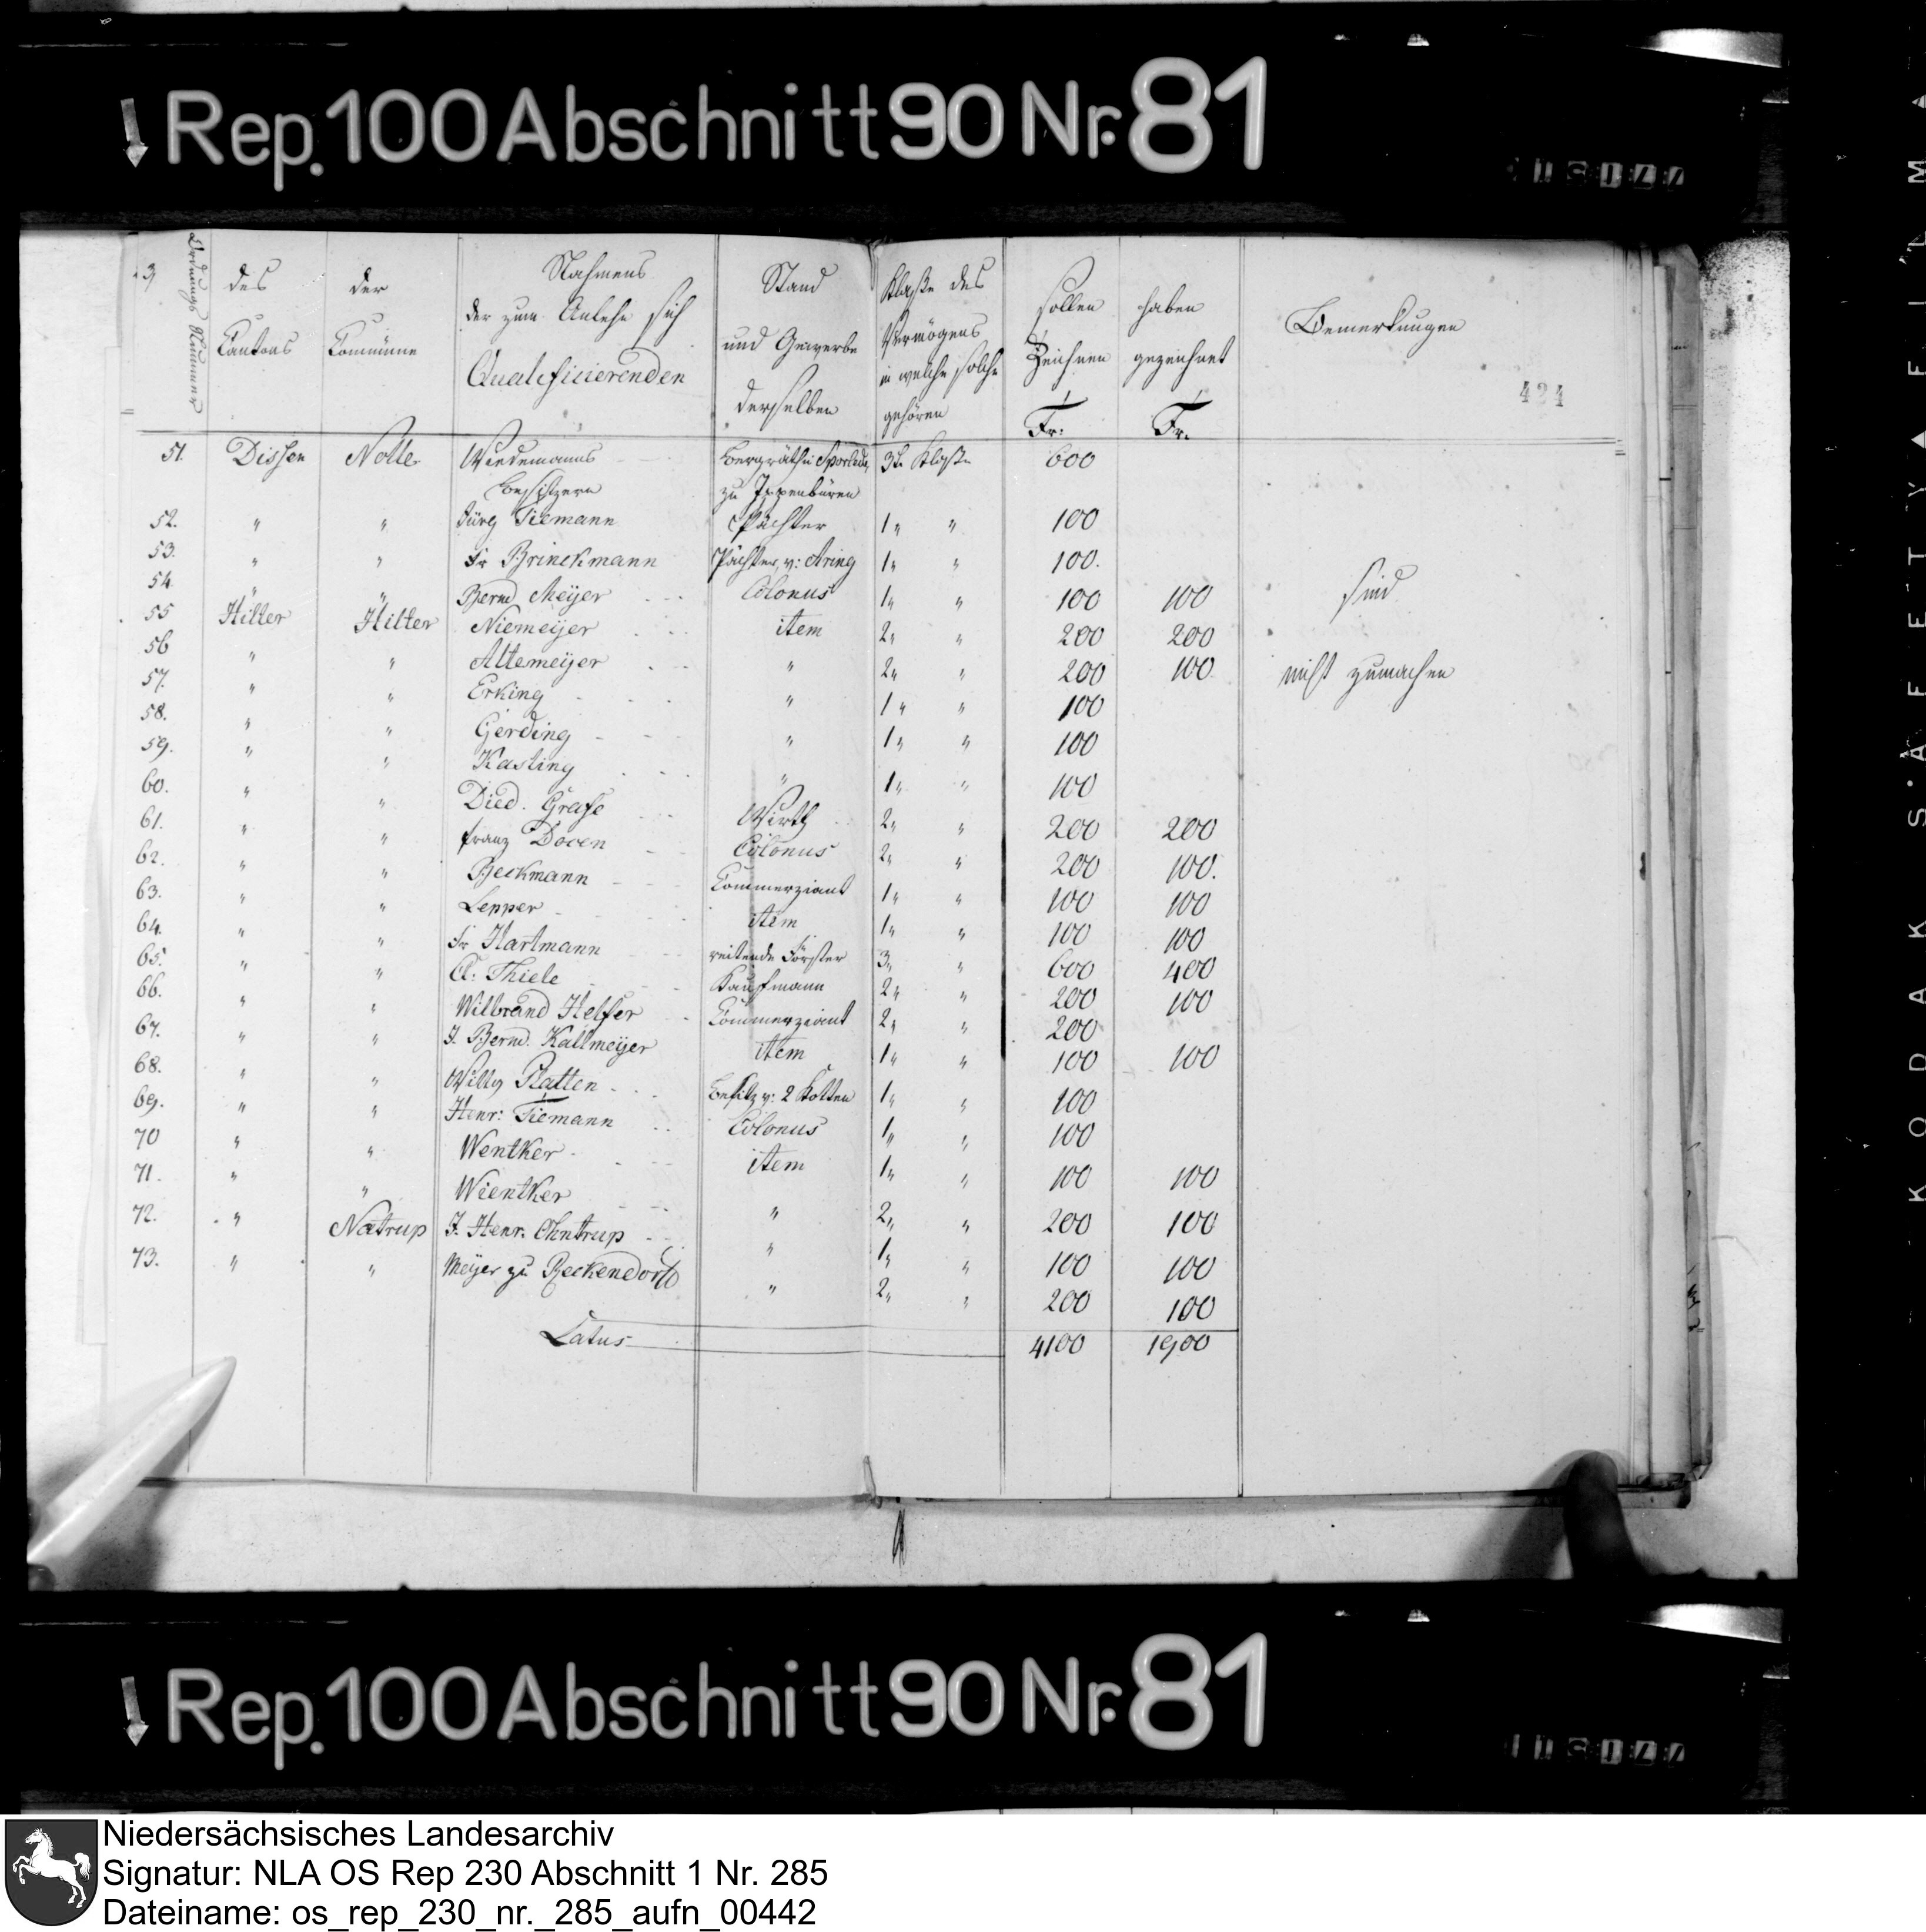 Rep. 100 Abschnitt 90 Nr. 81
Ordnungs Nummer
des Cantons
der Commüne
Nahmens der zum Anlehn sich Qualificierenden
Stand und Gewerbe derselben
Klaße des Vermögens in welche solche gehören
sollen Zeichnen Fr:
haben gezeichnet Fr.
Bemerkungen
424
51. Dissen Nolle Wiedemanns Besitzern Bergräthin zu Ippenbüren 3te Klaße 600
52. " " Jürg Tiemann Pächter 1" " 100
53. " " Fr Brinckmann Pächter, v: Aring 1" " 100.
54. " " Bernd Meÿer Colonus 1" " 100 100 sind
55 Hilter Hilter Niemeÿer item 2" " 200 200
56 " " Altemeÿer " 2" " 200 100 nicht zumachen
57. " " Erking " 1" " 100
58. " " Gerding " 1" " 100
59. " " Kasting " 1" " 100
60. " " Died. Grafe Wirth 2" " 200 200
61. " " franz Doven Colonus 2" " 200 100.
62. " " Beckmann Commerziant 1" " 100 100
63. " " Lepper item 1" " 100 100
64. " " Fr Hartmann reitende Förster 3" " 600 400
65. " " Cl: Thiele Kaufmann 2" " 200 100
66. " " Wilbrand Helfer Commerziant 2" " 200
67. " " J. Bernd. Kallmeÿer item 1" " 100 100
68. " " Willy Platten Besitz v: 2 Kotten 1" " 100
69. " " Henr: Tiemann Colonus 1" " 100
70 " " Wentker item 1" " 100 100
71. " " Wientker " 2" " 200 100
72. " Natrup J. Henr. Ohntrup " 1" " 100 100
73. " " Meÿer zu Reckendorf " 2" " 200 100
Latus 4100 1900
KODAK SAFETY FILM
Rep. 100 Abschnitt 90 Nr. 81
Niedersächsisches Landesarchiv
Signatur: NLA OS Rep 230 Abschnitt 1 Nr. 285
Dateiname: os_rep_230_nr._285_aufn_00442